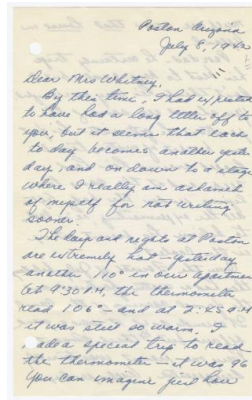 Poston Arizona
July 8, 1942
Dear Mrs Whitney,
By this time, I had expected
to have had a long letter off to
you, but it seems that each
to day becomes another yester
day, and on down to a stage
where I really am ashamed
of myself for not writing
sooner.
The days and nights at Poston
are extremely hot - yesterday
another 110° in our apartment
at 9:30 P.M. the thermometer
read 106° - and at 2:45 A.M
it was still so warm. I
made a special trip to read
the thermometer - it was 96
You can imagine just how